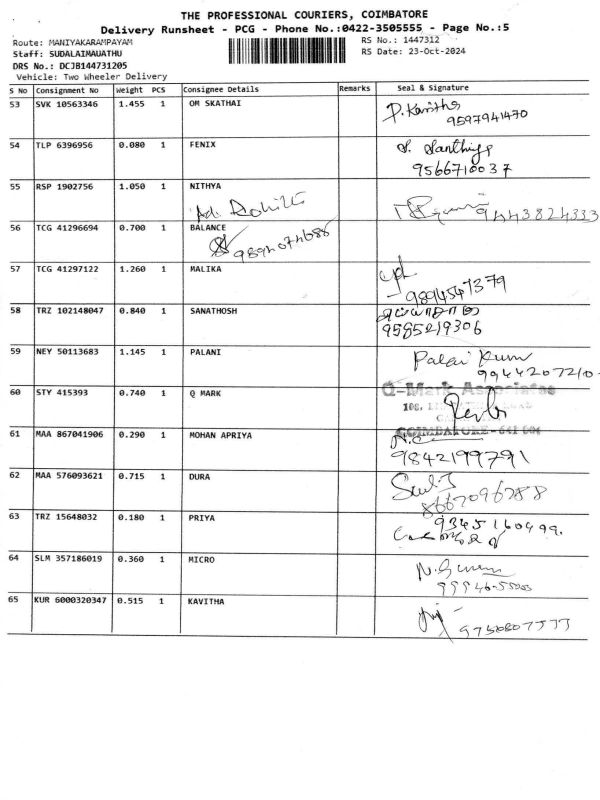 THE PROFESSIONAL COURIERS, COIMBATORE
Delivery Runsheet - PCG - Phone No.:0422-3505555 - Page No.:5
Route: MANIYAKARAMPAYAM
RS No.: 1447312
Staff: SUDALAIMAUATHU
RS Date: 23-Oct-2024
DRS No.: DCJB144731205
Vehicle: Two Wheeler Delivery
S No Consignment No Weight PCS Consignee Details Remarks Seal & Signature
53 SVK 10563346 1.455 1 OM SKATHAI
P. Kavitha
9597941470
54 TLP 6396956 0.080 1 FENIX
S. Santhiya
9566710037
55 RSP 1902756 1.050 1 NITHYA
9443824333
56 TCG 41296694 0.700 1 BALANCE
57 TCG 41297122 1.260 1 MALIKA
9894547379
58 TRZ 102148047 0.840 1 SANATHOSH
9585219306
59 NEY 50113683 1.145 1 PALANI
Palai Kum
9944207210
60 STY 415393 0.740 1 Q MARK
Q-Mark Associates
COIMBATORE - 641
61 MAA 867041906 0.290 1 MOHAN APRIYA
9842199791
62 MAA 576093621 0.715 1 DURA
8667096788
63 TRZ 15648032 0.180 1 PRIYA
9345160499.
64 SLM 357186019 0.360 1 MICRO
65 KUR 6000320347 0.515 1 KAVITHA